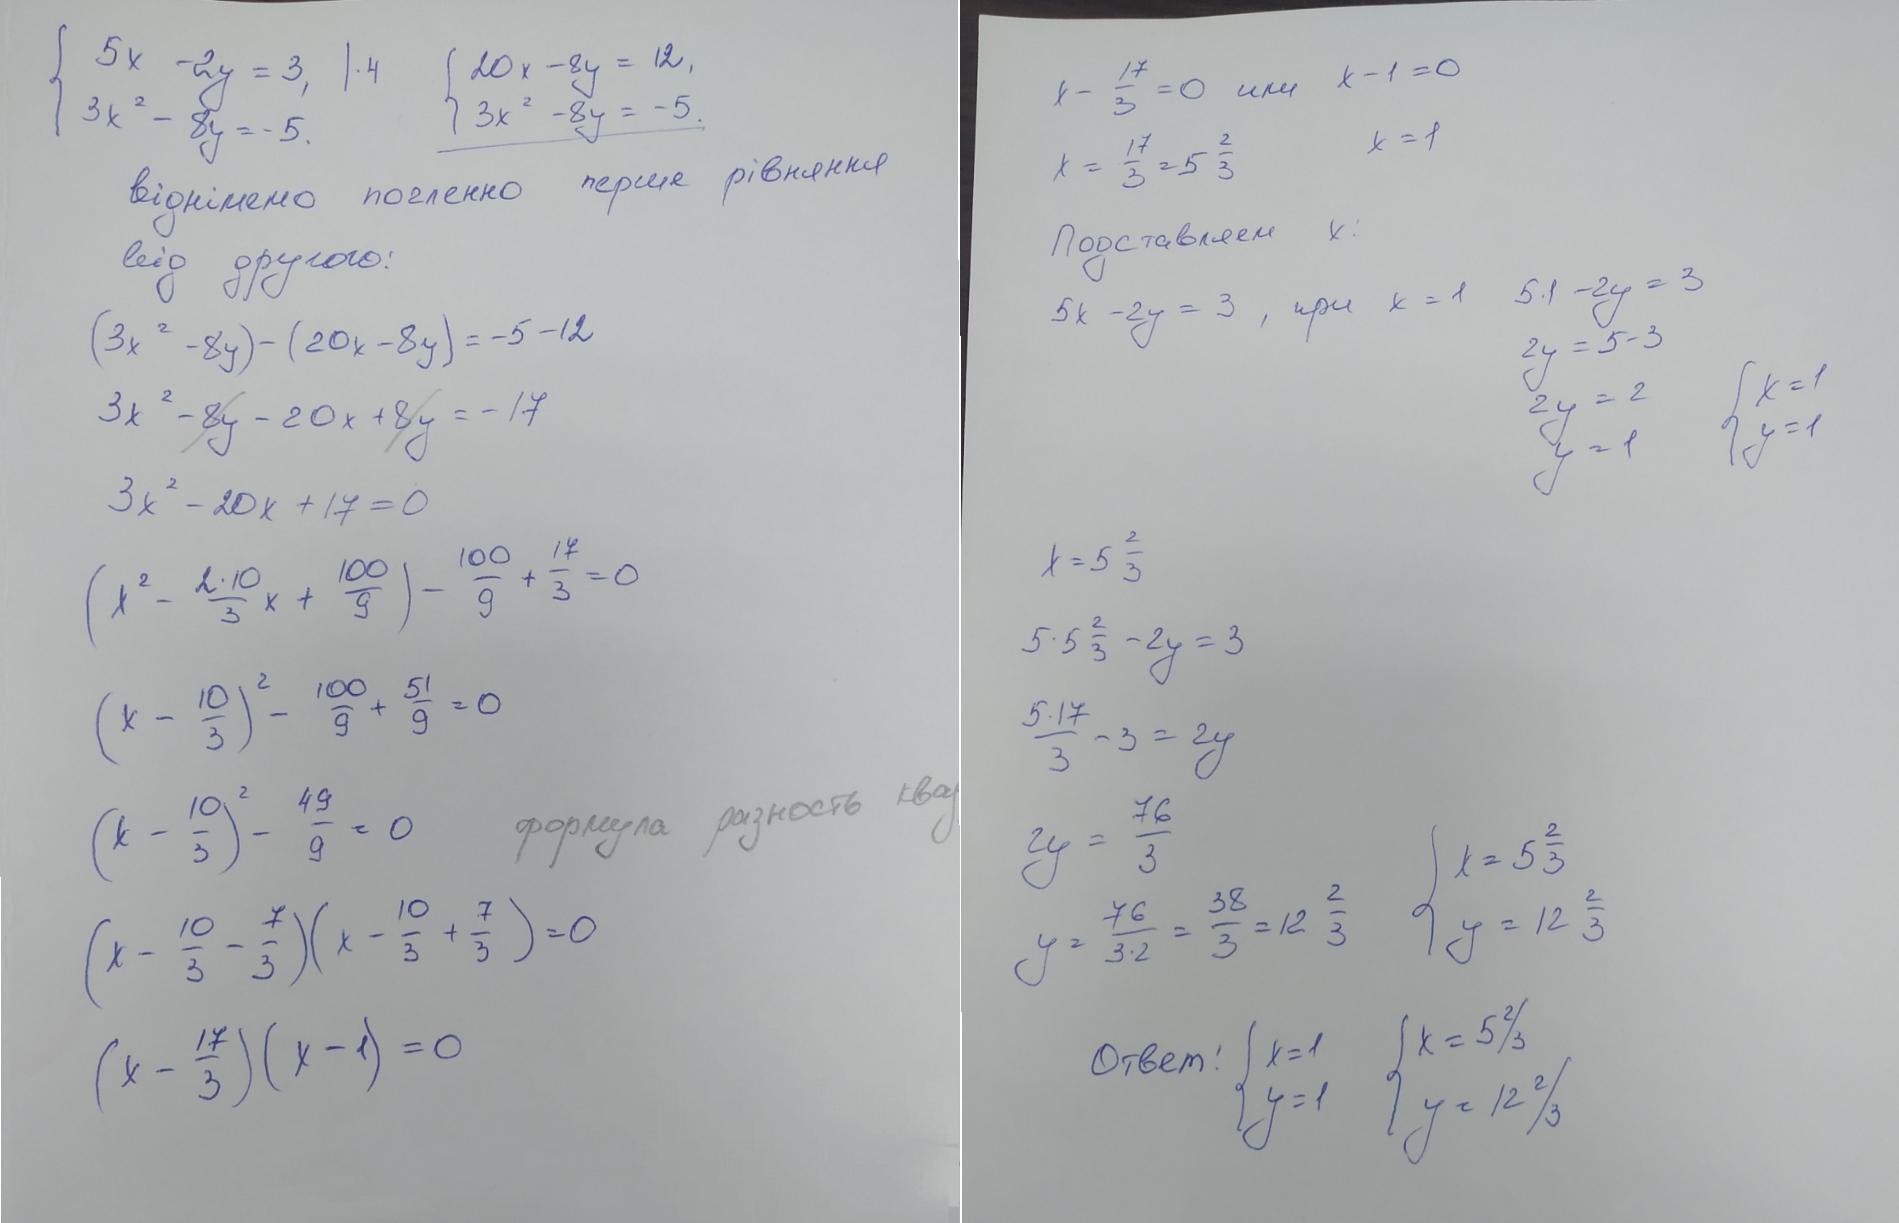 { 5x - 2y = 3, |·4   { 20x - 8y = 12,
{ 3x² - 8y = -5.   { 3x² - 8y = -5.
віднімемо почленно перше рівняння
від другого:
(3x² - 8y) - (20x - 8y) = -5 - 12
3x² - 8y - 20x + 8y = -17
3x² - 20x + 17 = 0
(x² - 2·10/3 x + 100/9) - 100/9 + 17/3 = 0
(x - 10/3)² - 100/9 + 51/9 = 0
(x - 10/3)² - 49/9 = 0   формула разность
(x - 10/3 - 7/3)(x - 10/3 + 7/3) = 0
(x - 17/3)(x - 1) = 0
x - 17/3 = 0 или x - 1 = 0
x = 17/3 = 5 2/3   x = 1
Подставляем x:
5x - 2y = 3, при x = 1   5·1 - 2y = 3
2y = 5 - 3
2y = 2   { x = 1
y = 1   { y = 1
x = 5 2/3
5·5 2/3 - 2y = 3
5·17/3 - 3 = 2y
2y = 76/3   { x = 5 2/3
y = 76/3·2 = 38/3 = 12 2/3   { y = 12 2/3
Ответ: { x = 1   { x = 5 2/3
{ y = 1   { y = 12 2/3